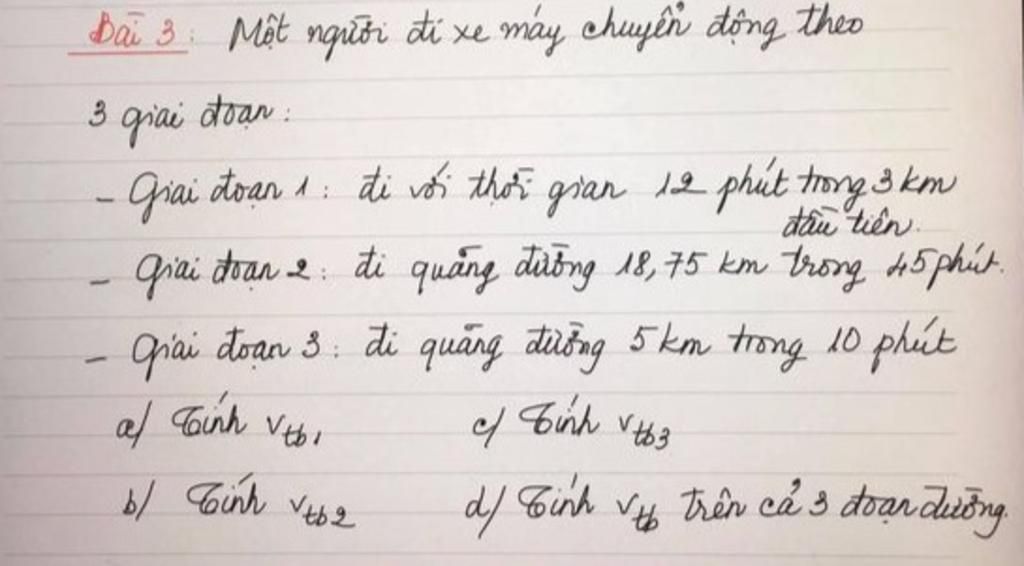 Bài 3: Một người đi xe máy chuyển động theo
3 giai đoạn:
- Giai đoạn 1: đi với thời gian 12 phút trong 3 km
đầu tiên.
- Giai đoạn 2: đi quãng đường 18,75 km trong 45 phút.
- Giai đoạn 3: đi quãng đường 5 km trong 10 phút
a/ Tính vtb1 c/ Tính vtb3
b/ Tính vtb2 d/ Tính vtb trên cả 3 đoạn đường.